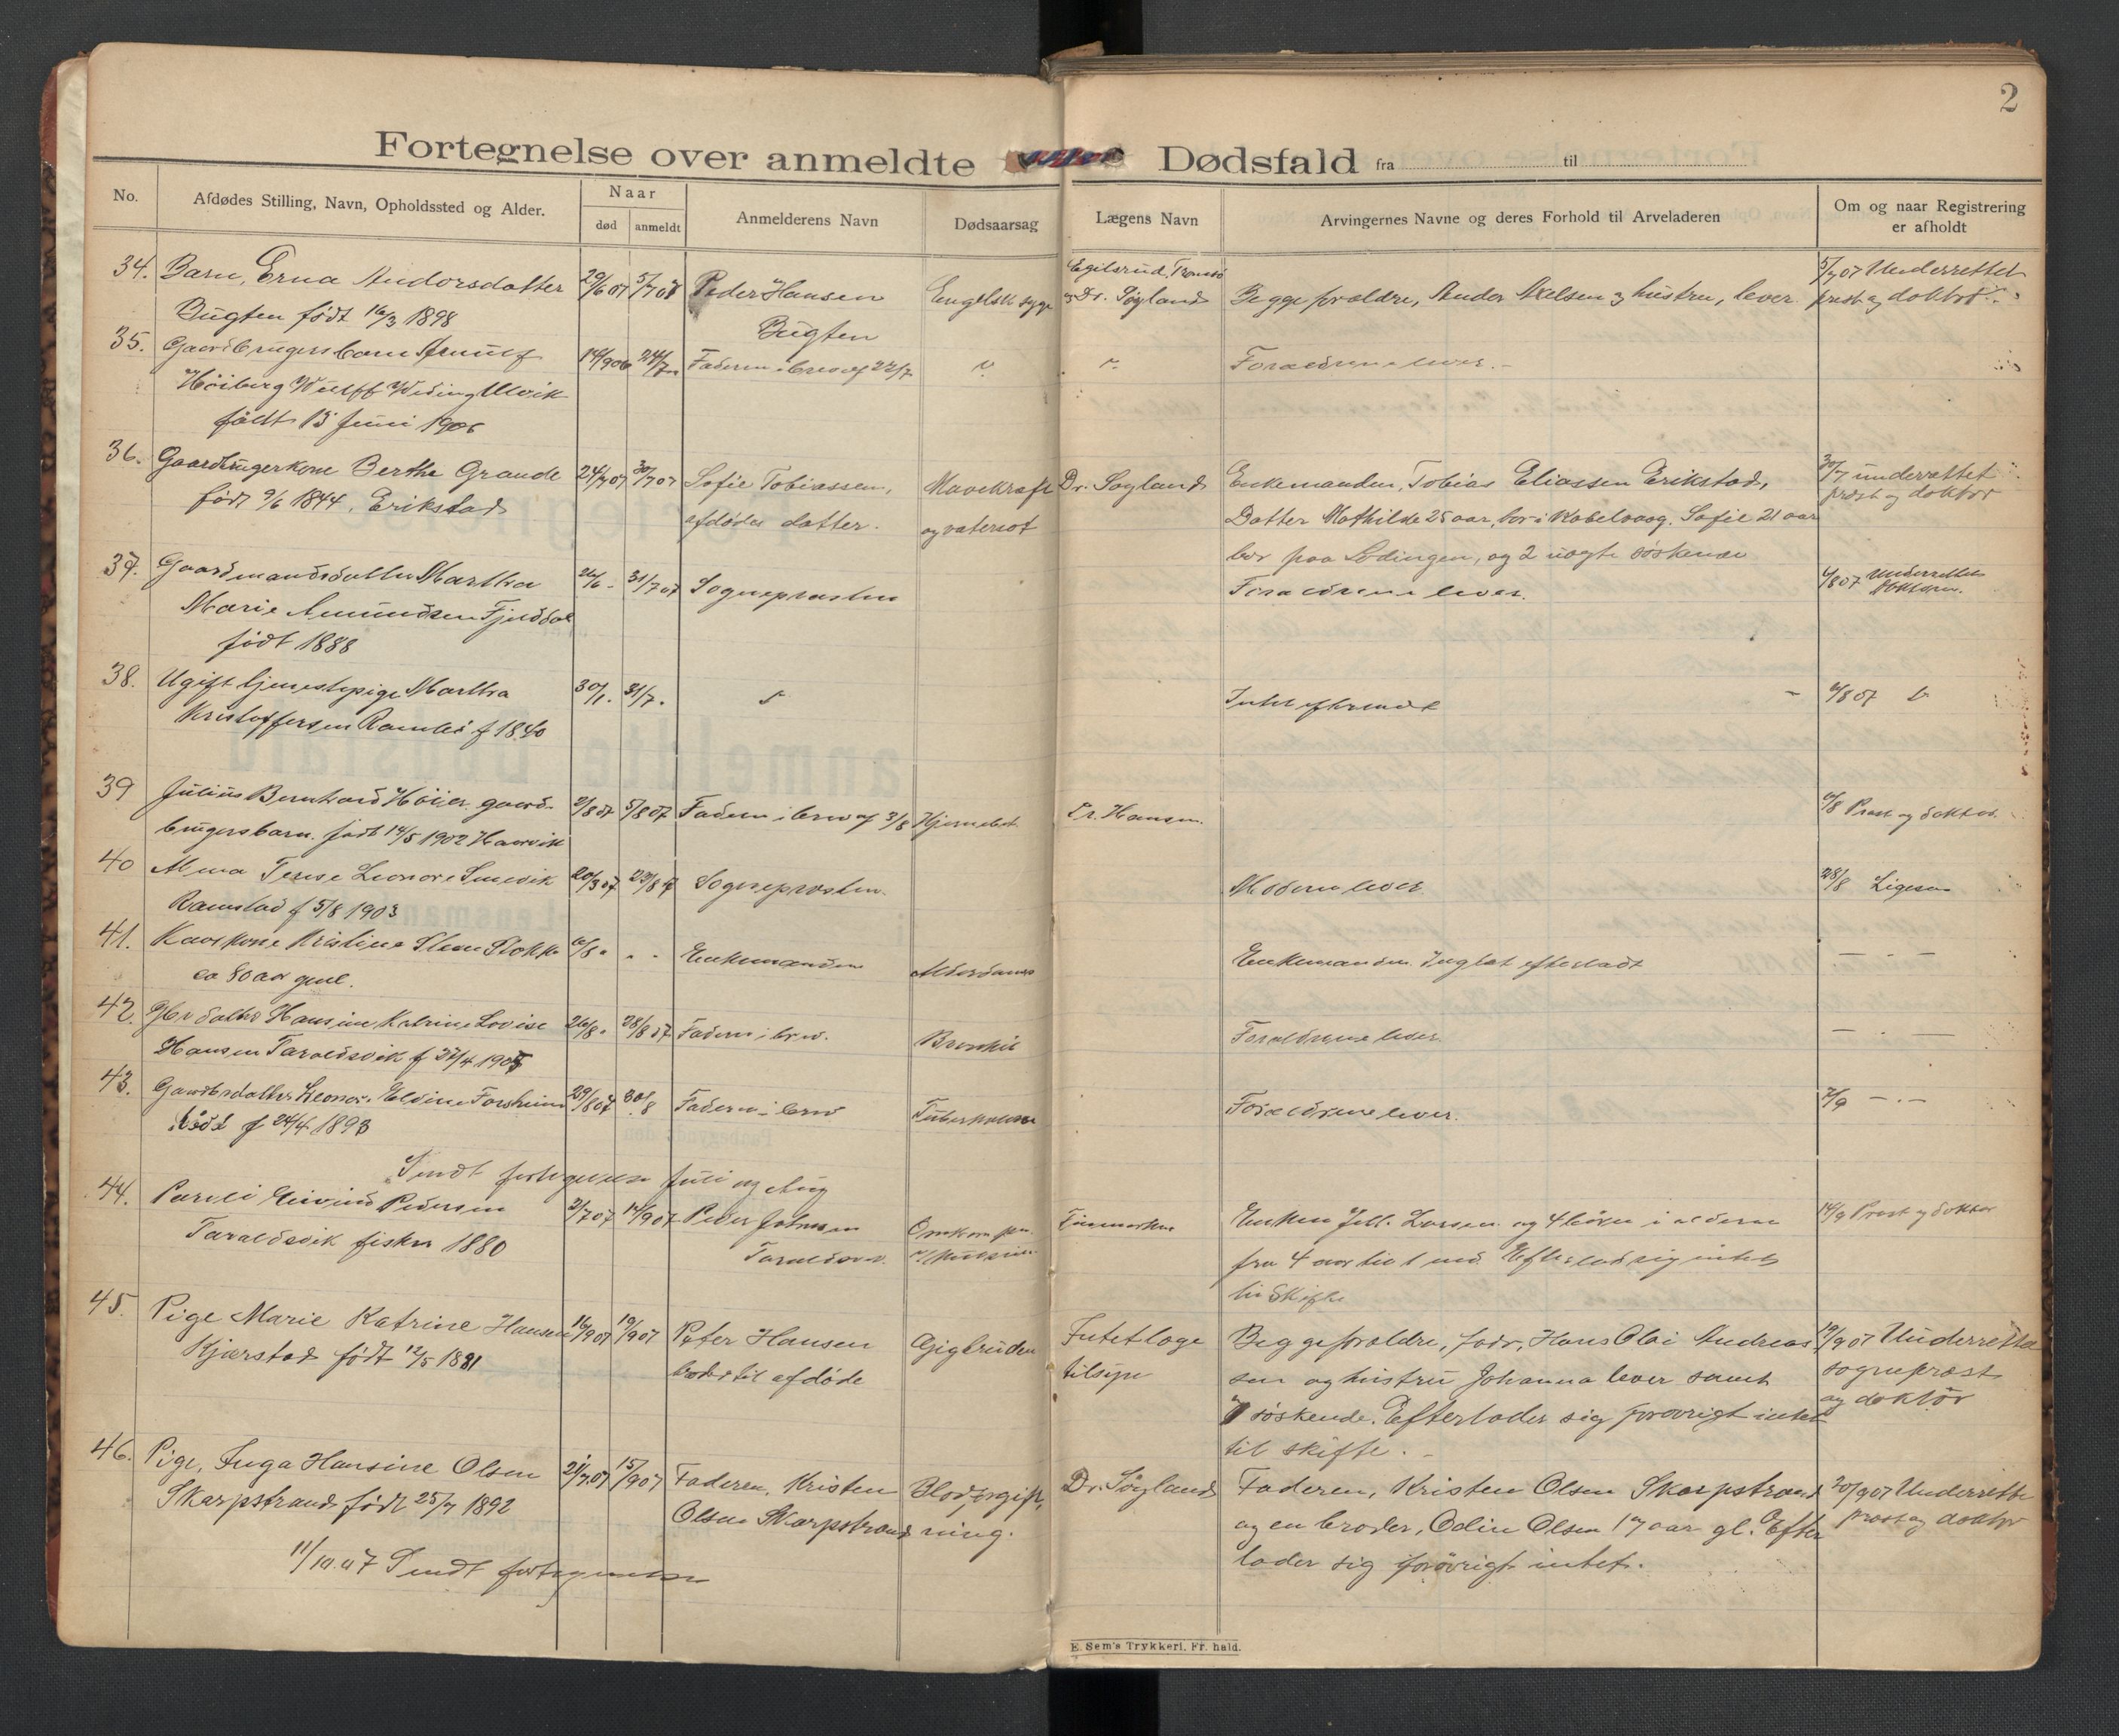 2
Fortegnelse over anmeldte Dødsfald fra til
No.
Afdødes Stilling, Navn, Opholdssted og Alder.
Naar
død
anmeldt
Anmelderens Navn
Dødsaarsag
Lægens Navn
Arvingernes Navne og deres Forhold til Arveladeren
Om og naar Registrering
er afholdt
34. Barn, Erna Andorsdatter 29/6 07 5/7 07 Peder Hansen Engelsk syge Egilsrud, Tromsö 5/7 07 Underrettet
Bugten födt 16/3 1898 Bugten og Dr. Søyland Begge forældre, Andor Axelsen og hustru, lever. prest og doktor
35. Gaardbrugersbarn 24/7 Faderen i brev af 22/7 " " Forældrene lever.
Höiberg Wulff Ulvik
födt 15 Juni 1906
36. Gaardbrugerkone Berthe Grande 24/7 07 30/7 07 Sofie Tobiassen, Mavekræft Dr. Søyland Enkemanden, Tobias Eliassen Erikstad, 30/7 underrettet
født 9/6 1844, Erikstad afdødes datter. og vatersot Datter Mathilde 25 aar, bor i Kabelvaag. Sofie 21 aar prest og doktor
bor paa Lødingen, og 2 uægte søskende
37. Gaardmandsdatter Martha 26/6 - 31/7 07 Sognepresten Forældrene lever. 4/8 07 Underrettet
Marie Amundsen Fjelddal Doktoren.
født 1888
38. Ugift tjenestepige Martha 30/1. 31/7. " Intet efterladt - 4/8 07 "
Kristoffersen f 1840
39 Julius Bernhard Höier gaard- 2/8 07 5/8 07 Faderen i brev af 3/8 Dr. Hansen 6/8 Prest og doktor.
brugersbarn. født 14/5 1902 Haarvik
40 Alma Terese Leonore 20/3 07 23/8 07 Sognepresten. Moderen lever. 28/8 Ligesaa
Ramstad f 5/8 1903
41. Kaarkone Kristine Stokke 6/8 " " - Enkemanden Alderdoms Enkemanden. efterladt — - —
ca 80 aar gml.
42. datter Hansine Katrine Lovise 26/8 " 28/8 07 Faderen i brev. Bronkit Forældrene lever. — - —
Hansen Taraldsvik f 1905
43. Gaardbrdatter Leonor Eldine Forsheim 29/8 07 30/8 Faderen i brev Tuberkulose Forældrene lever. 2/9 — - —
født f 24/4 1893
Sendt fortegnelse Juli og Aug
44. Pareli Eivind Pedersen 2/7 07 14/9 07 Peder Johnsen Omkom paa Finmarken Enken Larsen og 4 börn i alderen 14/9 Prest og doktor
Taraldsvik fisker 1880 Taraldsvik. fra 4 aar til 1 md. Efterlod sig intet
til Skifte
45. Pige Marie Katrine Hansen 16/9 07 19/9 07 Peter Hansen Gigtfeber Intet læge Begge forældre, fadr, Hans Olai Andreas 19/9 07 Underrettet
Kjærstad født 12/5 1881 broder til afdöde tilsyn sen og hustru Johanna lever samt sogneprest
7 søskende. Efterlader sig forøvrigt intet og doktor
til skifte.
46. Pige, Inga Hansine Olsen 21/7 07 15/9 07 Faderen, Kristen Blodforgift- Dr. Søyland Faderen, Kristen Olsen Skarpstrand 20/9 07 Underrettet
Skarpstrand født 25/7 1892 Olsen Skarpstrand ning. og en broder, Odin Olsen 17 aar gl. Efter prost og doktor
lader sig forøvrigt intet.
11/10.07 Sendt fortegnelse
E. Sem's Trykkeri, Fr. hald.